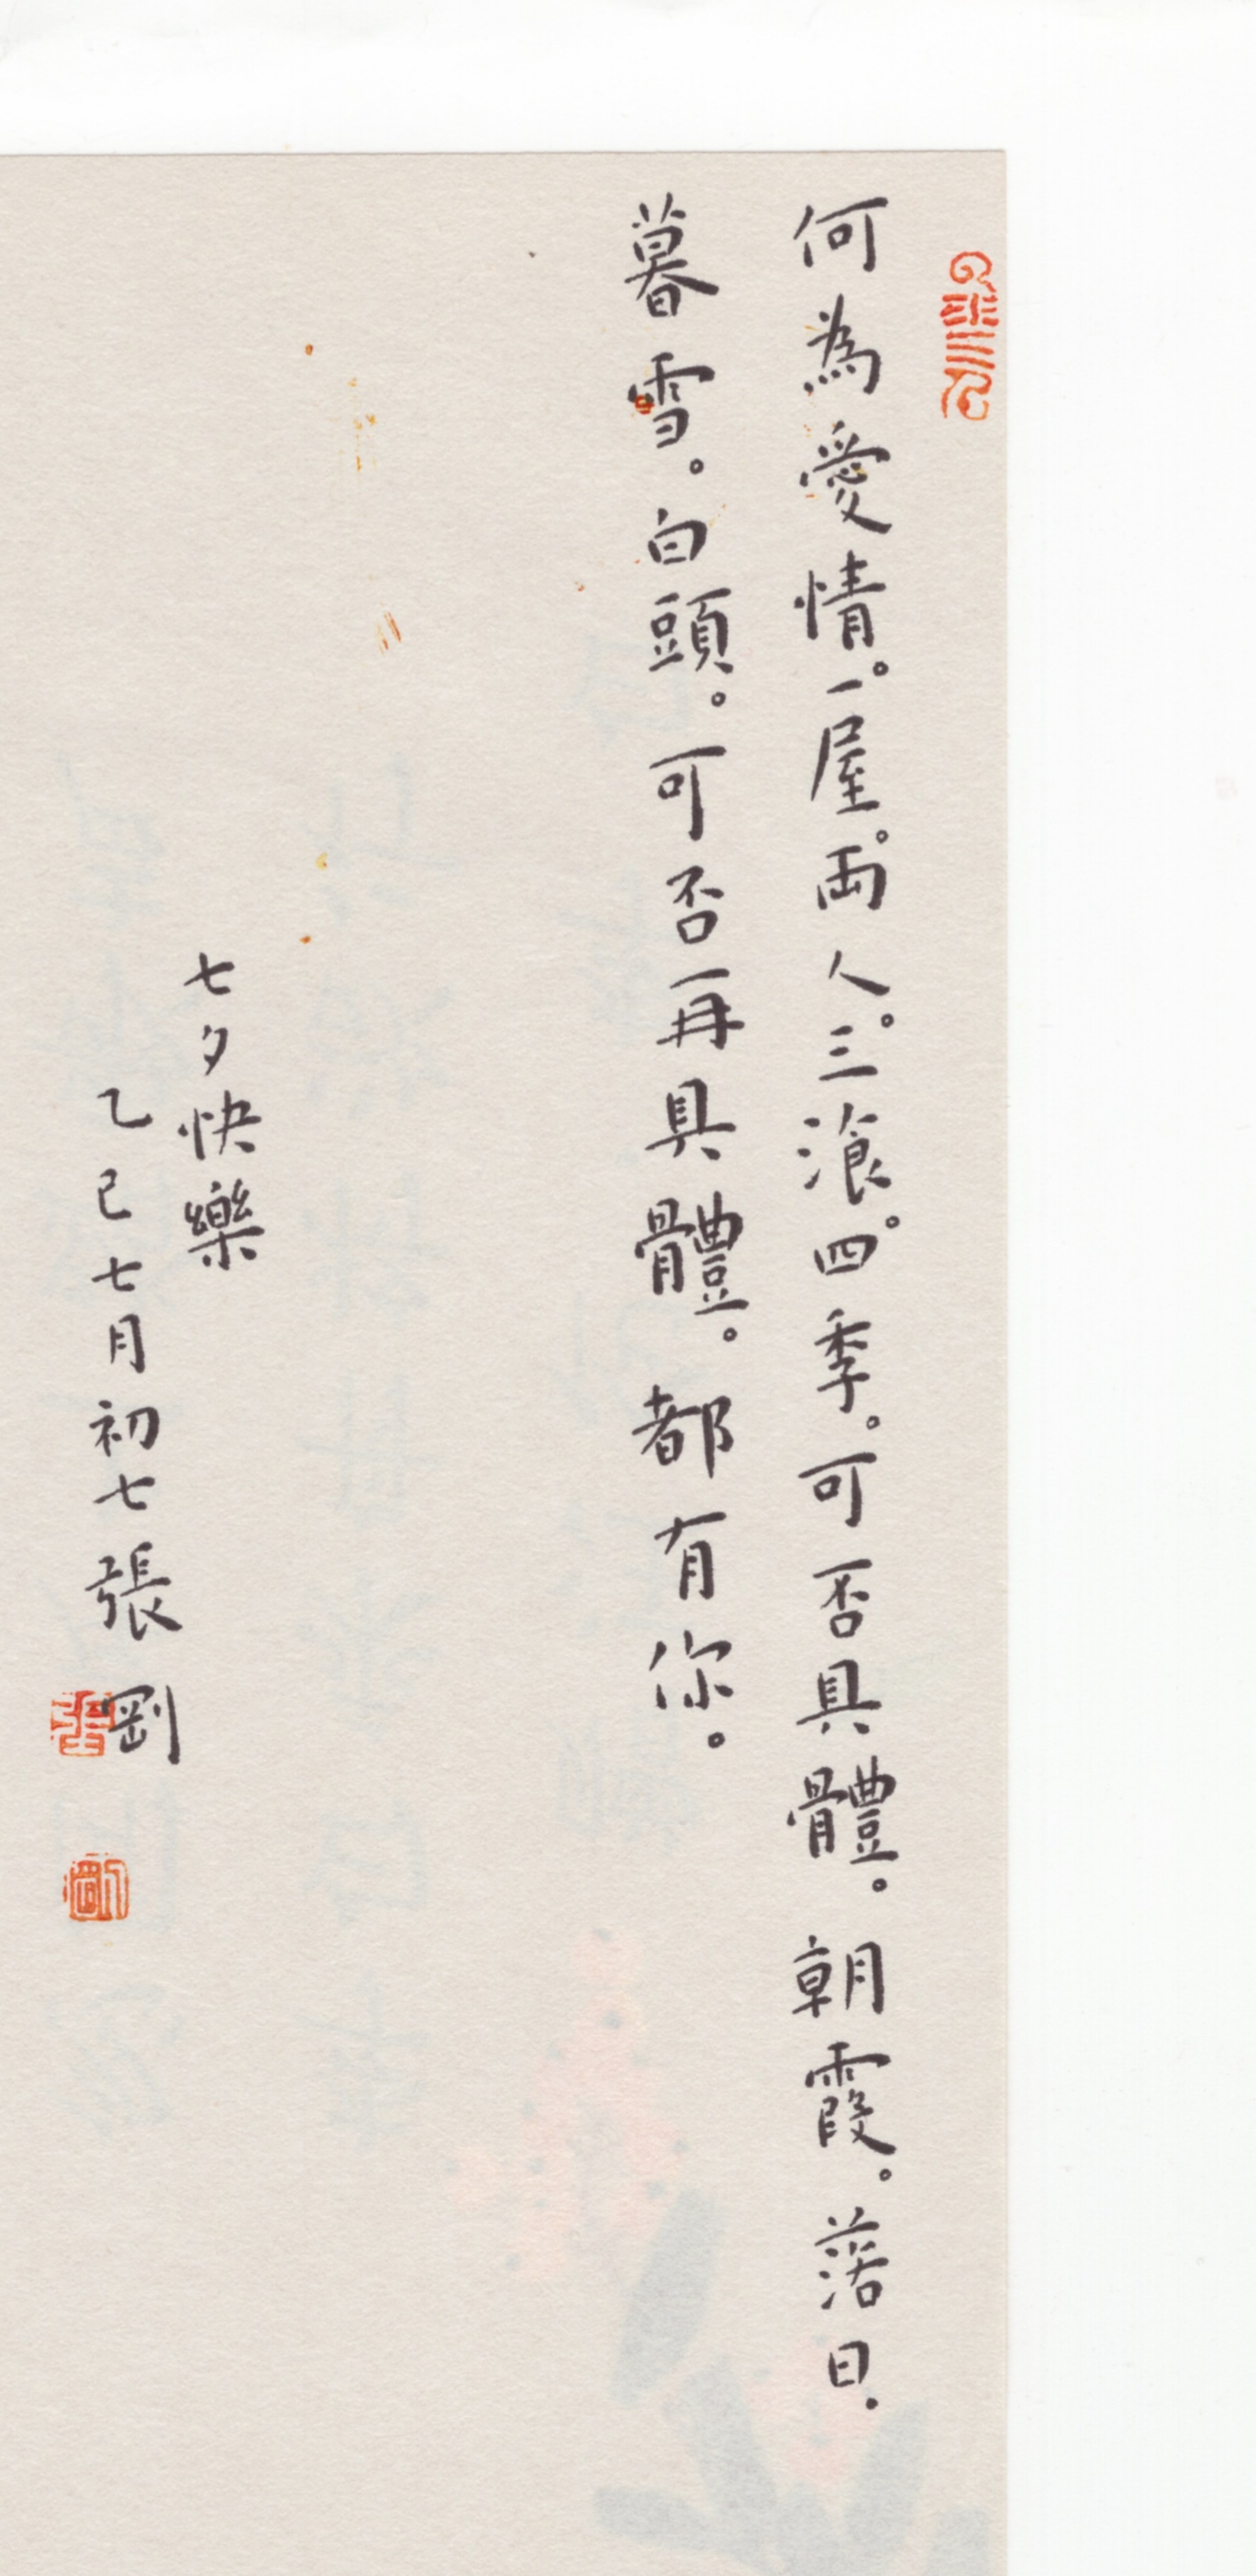 何為愛情。一屋。兩人。三湌。四季。可否具體。朝霞。落日。
暮雪。白頭。可否再具體。都有你。
七夕快樂
乙巳七月初七張剛